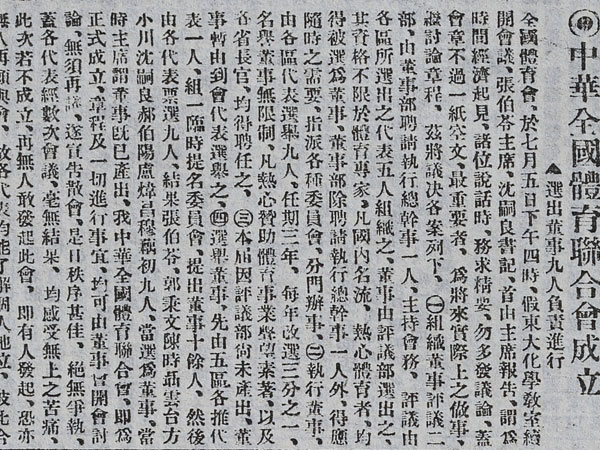 中華全國體育聯合會成立
▲選出董事九人負責進行
全國體育會、於七月五日下午四時、假東大化學教室續
開會議、張伯苓主席、沈嗣良書記、首由主席報告、謂爲
時間經濟起見、諸位說話時、務求精要、勿多發議論、蓋
會章不過一紙空文、最重要者、爲將來實際上之做事、
繼討論章程、茲將議決各案列下、㊀組織董事評議二
部、由董事部聘請執行總幹事一人、主持會務、評議由
各區所選出之代表五人組織之、董事由評議部選出之、
其資格不限於體育專家、凡國內名流、熱心體育者、均
得被選爲董事、董事部除聘請執行總幹事一人外、得應
隨時之需要、指派各種委員會、分門辦事、㊁執行董事、
由各區代表選舉九人、任期三年、每年改選三分之一、
名譽董事無限制、凡熱心贊助體育事業聲望素著、以及
各省長官、均得聘任之、㊂本屆因評議部尚未產出、董
事暫由到會代表選舉之、㊃選舉董事、先由五區各推代
表一人、組一臨時提名委員會、提出董事十餘人、然後
由各代表票選九人、結果張伯苓、郭秉文陳時聶雲台方
小川沈嗣良郝伯陽盧煒昌穆藕初九人、當選爲董事、當
時主席謂董事旣已產出、我中華全國體育聯合會、即爲
正式成立、章程及一切進行事宜、均可由董事會開會討
論、無須再議、遂宣吿散會、是日秩序甚佳、絕無爭執、
蓋各代表經數次會議、毫無結果、均感受無上之苦痛、
此次若不成立、再無人敢發起此會、即有人發起、恐亦
無人再願與會、故各代表均能了解個人地位、彼此合